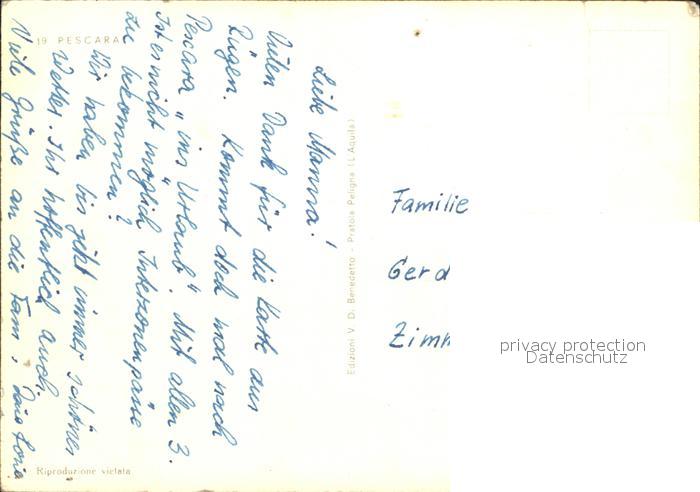 19 PESCARA
Liebe Manna!
Vielen Dank für die Karte aus
Rügen. Kommt doch mal nach
Pescara „ins Urlaub". Mit allen 3.
Ist es nicht möglich Interzonenpässe
zu bekommen?
Wir haben bis jetzt immer schönes
Wetter. Ihr hoffentlich auch.
Viele Grüße an die Fam.
Riproduzione vietata
Edizioni V. D. Benedetto - Pratola Peligna (L'Aquila)
Familie
Gerd
Zimm
privacy protection
Datenschutz